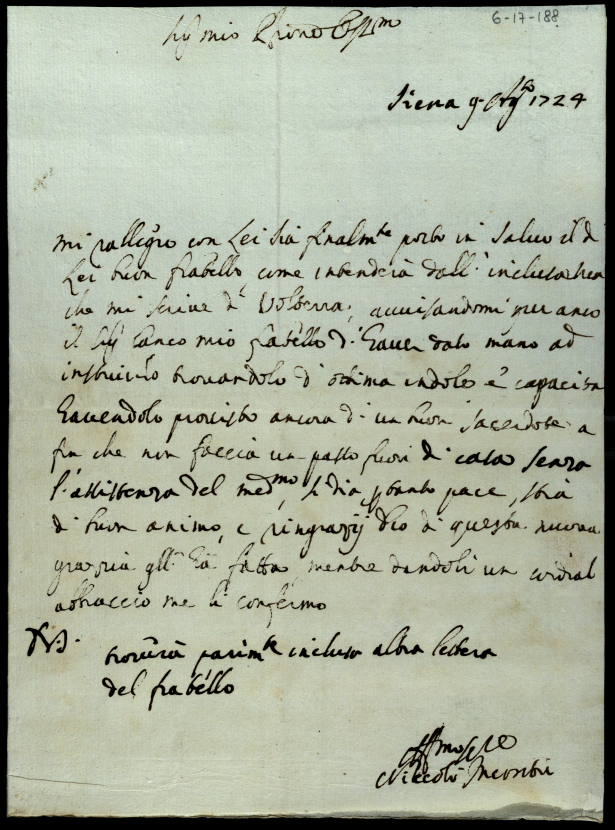 6-17-188
Sig mio Prone Oss.mo
Siena 9. Ag.o 1724
mi rallegro con Lei sia finalm.te posto in salvo il di
Lei buon fratello, come intenderà dall'inclusa
che mi scrive di Volterra; avvisandomi per anco
il Sig mio fratello d'haver dato mano ad
instruirlo trovandolo d'ottima indole e capacita
havendolo provisto ancora di un buon sacerdote a
fin che non faccia un passo fuori di casa senza
l'assistenza del med.mo, si dia p tanto pace, stia
di buon animo, e ringrazij Dio di questa nuova
grazia gli hà fatta, mentre dandoli un cordial
abbraccio me li confermo
P.S.
troverà parim.te inclusa altra lettera
del fratello
Niccolò